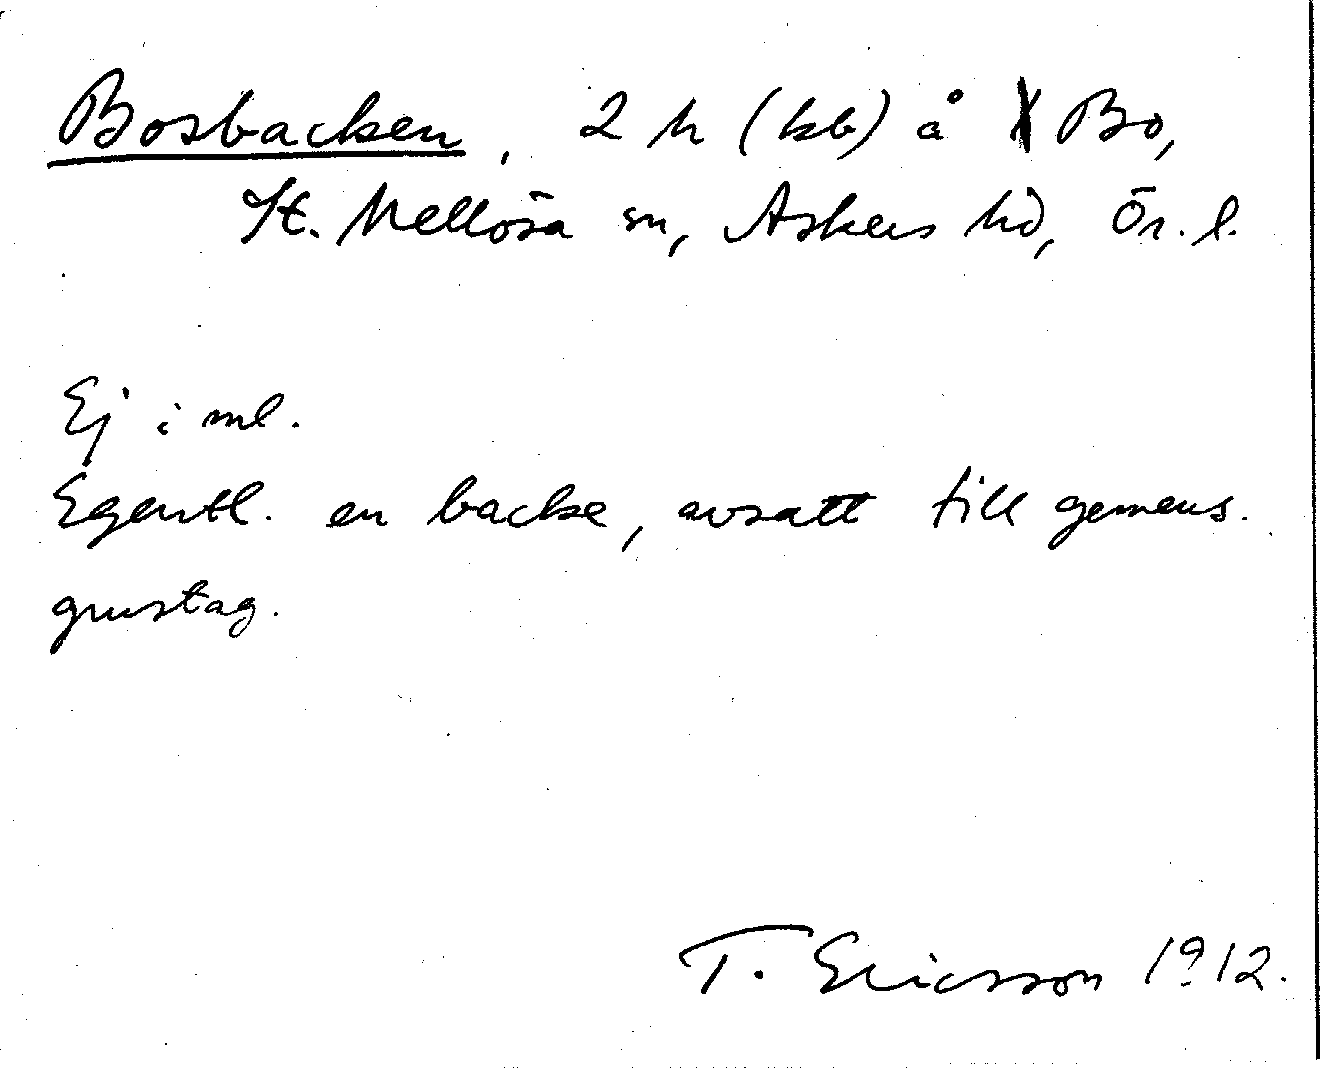 Bosbacken, 2 h (kb) å Bo,
St. Mellösa sn, Askers hd, Ör. l.
Ej i ml.
Egentl. en backe, avsatt till gemens.
grustag.
T. Ericsson 1912.